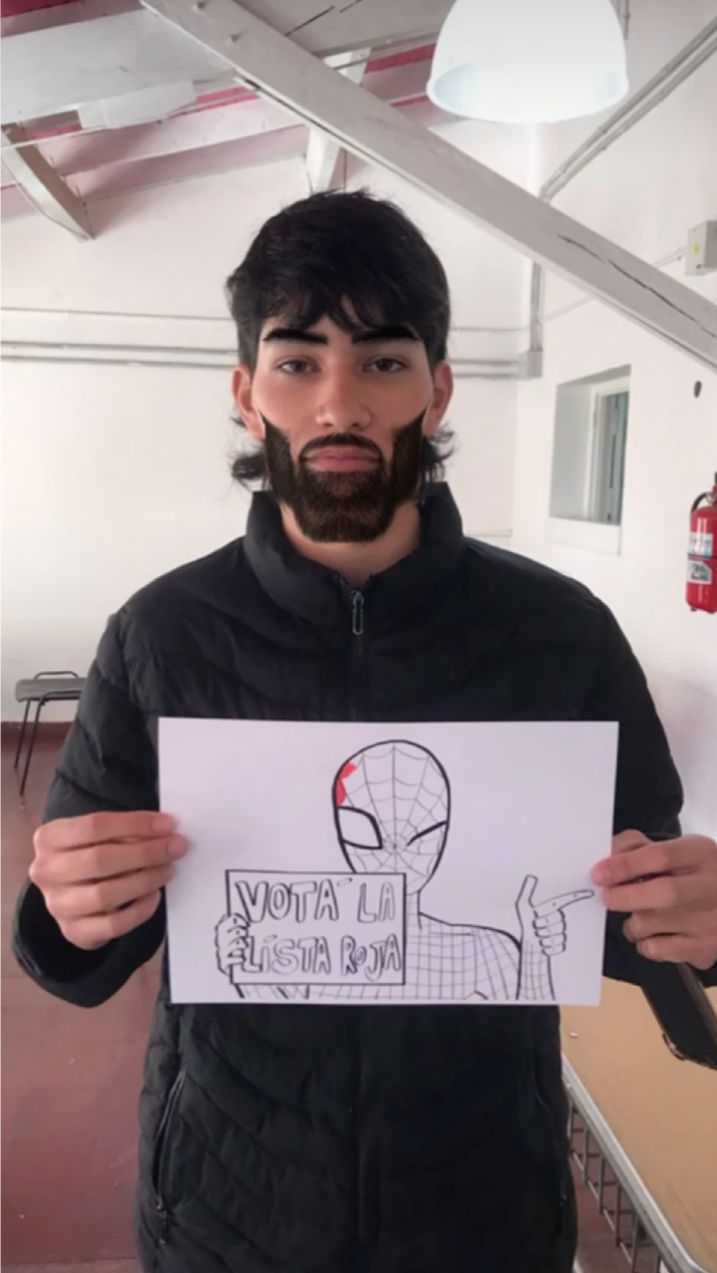 VOTA´ LA
LÍSTA ROJA